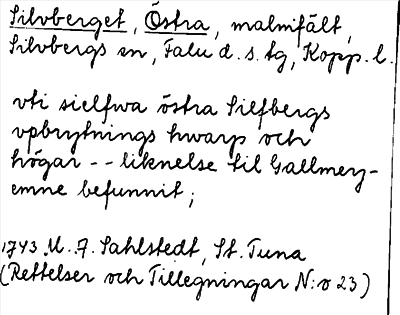 Silvberget, Östra, malmfält,
Silvbergs sn, Falu d. s. tg, Kopp. l.
vti sielfwa östra Silfbergs
vpbrytnings hwarp och
högar -- liknelse til Gallmey-
emne befunnit;
1743 M. A. Sahlstedt, St. Tuna
(Rettelser och Tillegningar N:o 23)